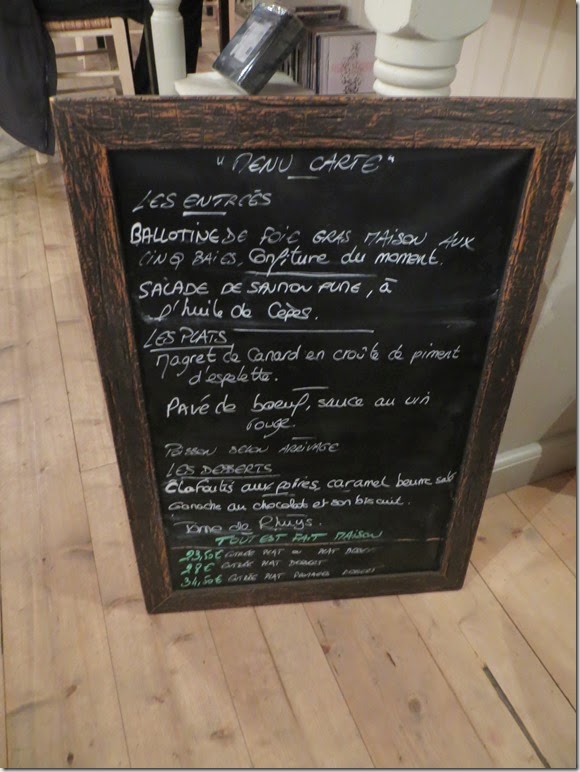 "MENU CARTE"
LES ENTRÉES
BALLOTINE DE FOIE GRAS MAISON AUX
CINQ BAIES, Confiture du moment.
SALADE DE SAUMON FUMÉ, à
l'huile de Cèpes.
LES PLATS
Magret de Canard en croûte de piment
d'espelette.
Pavé de boeuf, sauce au vin
rouge.
POISSON SELON ARRIVAGE
LES DESSERTS
Clafoutis aux poires, caramel beurre salé
Ganache au chocolat et son biscuit.
Tome de Rhuys.
TOUT EST FAIT MAISON
23,50€ ENTRÉE PLAT OU PLAT DESSERT
28€ ENTRÉE PLAT DESSERT
34,50€ ENTRÉE PLAT FROMAGE DESSERT